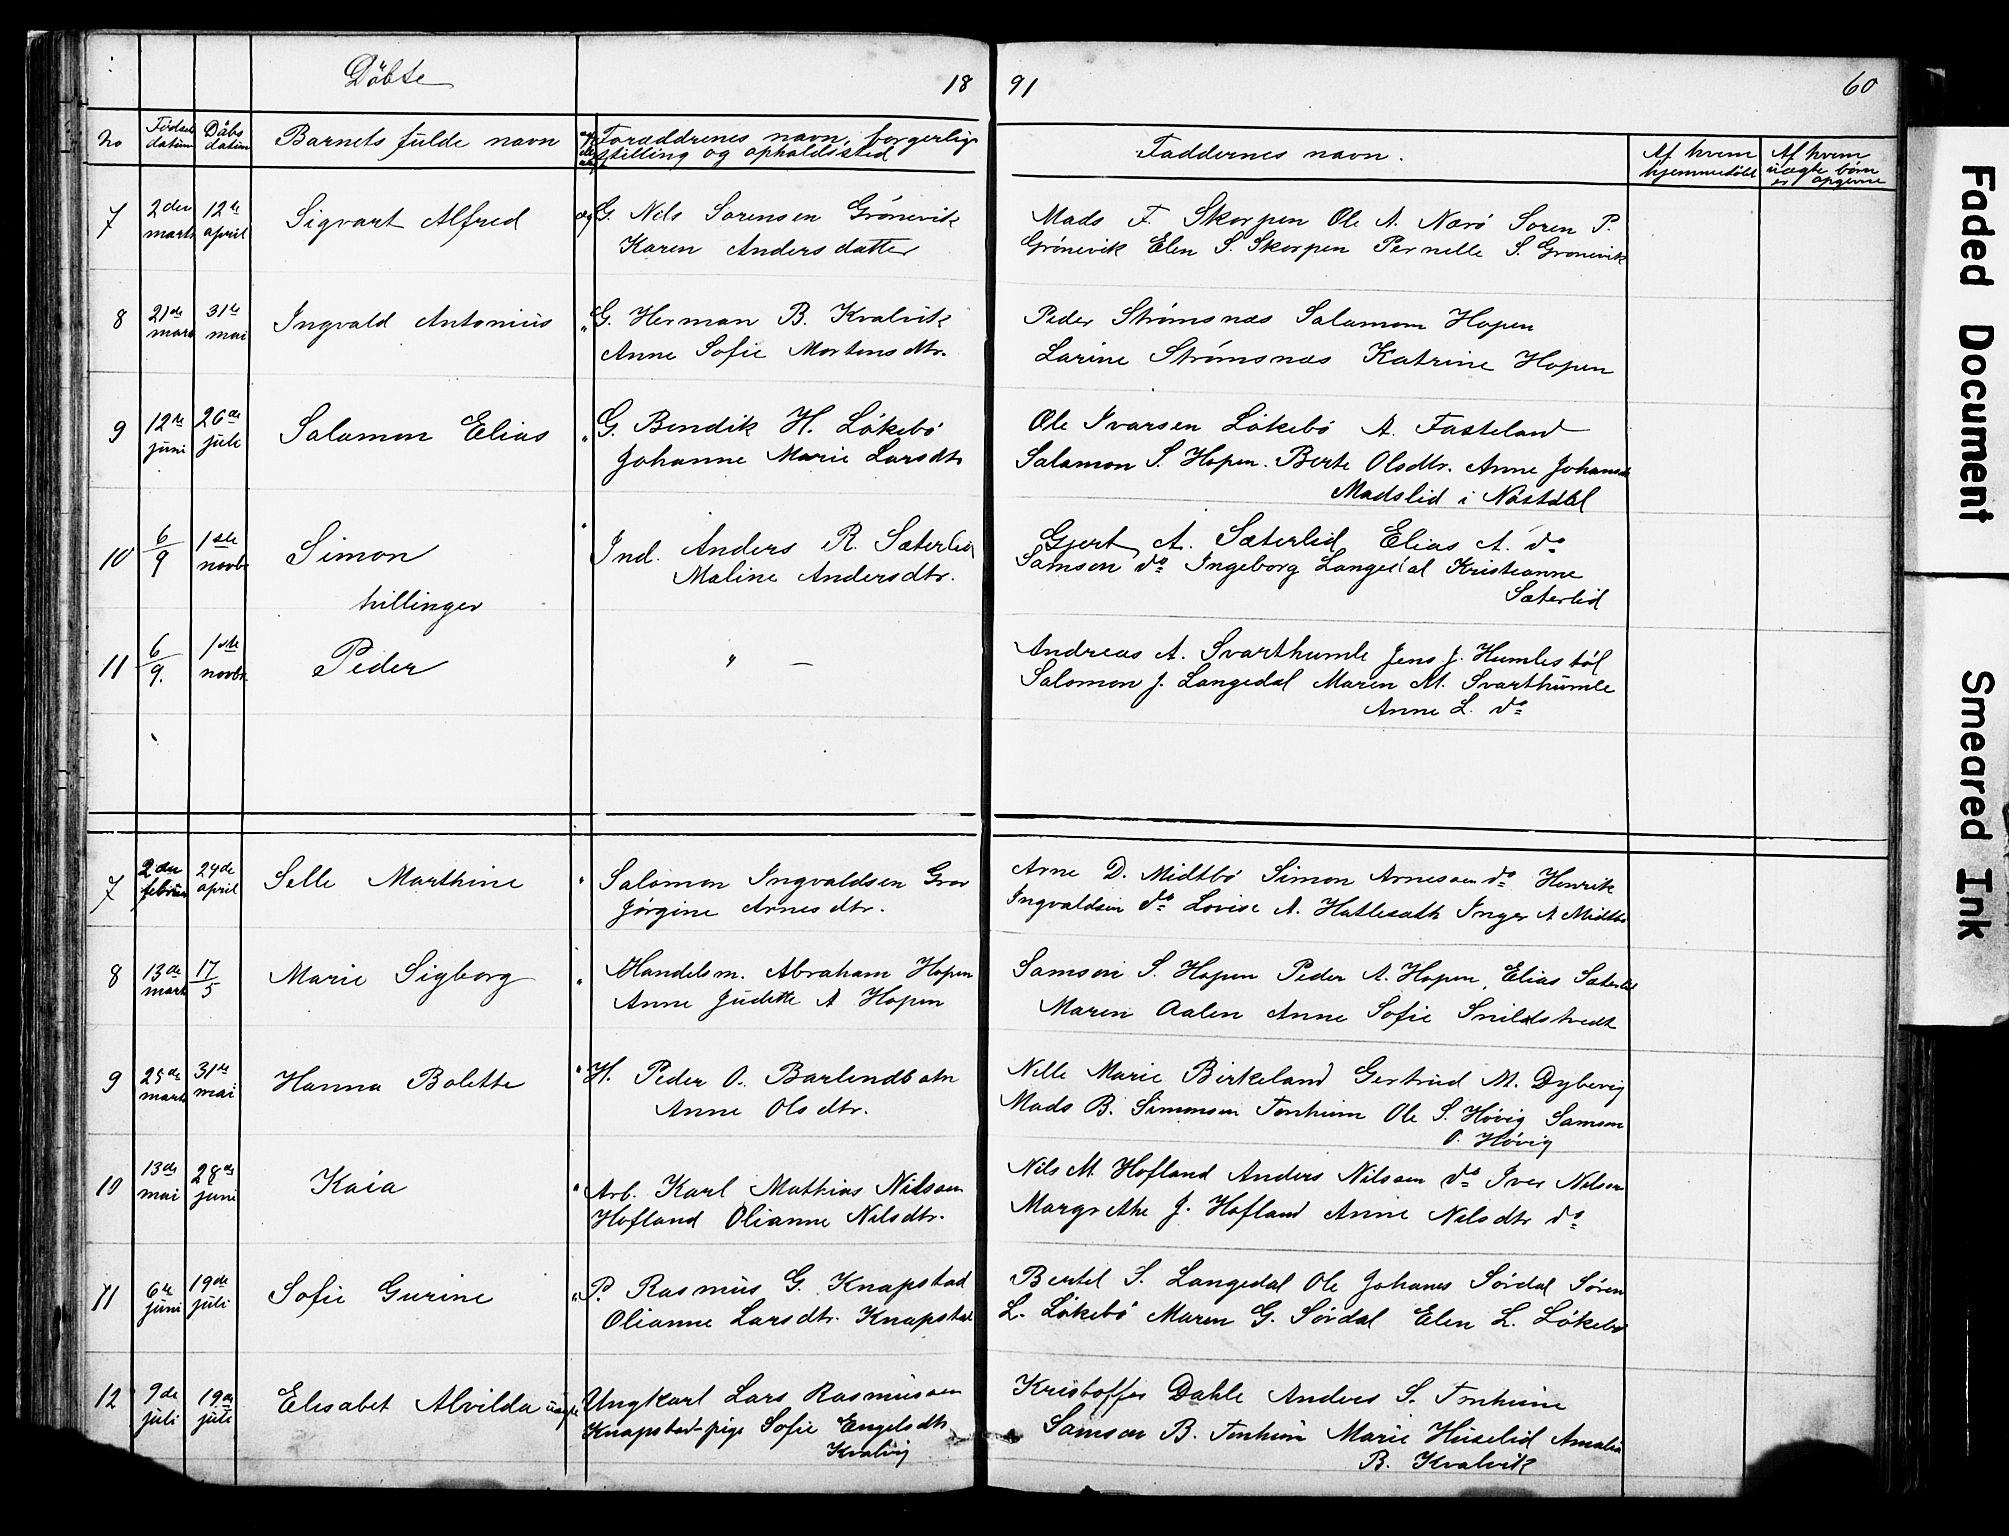 Döbte 18 91 60
No Födsels datum Dåbs datum Barnets fulde navn Forældrenes navn, borgerlig stilling og opholdssted Faddernes navn. Af hvem hjemmedöbt Af hvem uægte børn er opgivne
7 2den marts 12te april Sigvart Alfred æg G. Nels Sorensen Grönevik Mads F. Skorpen Ole A. Nærö Soren P.
Karen Andersdatter Grönevik Elen S. Skorpen Pernelle S. Gronevik
8 21de mars 31te mai Ingvald Antonius " G. Herman B. Kvalvik Peder Strömsnæs Salamon Hopen
Anne Sofie Mortensdtr. Larine Strömsnæs Katrine Hopen
9 12te juni 26de juli Salamon Elias " G. Bendik H. Lökebö Ole Ivarsen Lökebö A. Fasteland
Johanne Marie Larsdtr Salamon S. Hopen. Berte Olsdtr. Anne Johansd
Madslid i Nastdal
10 6/9 1ste novbr Simon " Ind. Anders R. Sæterlid Gjert A. Sæterlid Elias A. do
Maline Andersdtr. Samson do Ingeborg Langedal Kristianne
tvillinger Sæterlid
11 6/9. 1ste novbr. Peder " — Andreas A. Svarthumle Jens J. Humlestöl
Salomon J. Langedal Maren M. Svarthumle
Anne L. do
7 2den februar 24de april Selle Marthine " Salomon Ingvaldsen Grov Arne D. Midtbö Simon Arnesen do Henrik
Jörgine Arnesdtr. Ingvaldsen do Lovise A. Hatlesath Inger A Midtbö
8 13de mars 17/5 Marie Sigborg " Handelsm. Abraham Hopen Samson S. Hopen Peder A. Hopen, Elias Sæterlid
Anne Judette A Hopen Maren Aalen Anne Sofie Snildstvedt
9 25de marts 31te mai Hanna Bolette " H. Peder O. Barlendbotn Nille Marie Birkeland Gertrud M. Dybevig
Anne Olsdtr. Mads B. Simonsen Tonheim Ole S. Hövig Samson
O. Hövig
10 13de mai 28de juni Kaia " Arb. Karl Mathias Nilsen Nils M. Hofland Anders Nilsen do Iver Nilsen
Hofland Olianne Nilsdtr. Margrethe J. Hofland Anne Nilsdtr do
11 6te juni 19de juli Sofie Gurine " P. Rasmus G. Knapstad Bertel S. Langedal Ole Johanes Sördal Sören
Olianne Larsdtr. Knapstad L. Lökebö Maren G. Sördal Elen L. Lökebö
12 9de juli 19de juli Elisabet Alvilda uægte Ungkarl Lars Rasmussen Kristoffer Dahle Anders S. Tonheim
Knapstad pige Sofie Engelsdtr Samson B. Tonheim Marie Huselid Amalia
Kvalvig B. Kvalvik
Faded Document
Smeared Ink